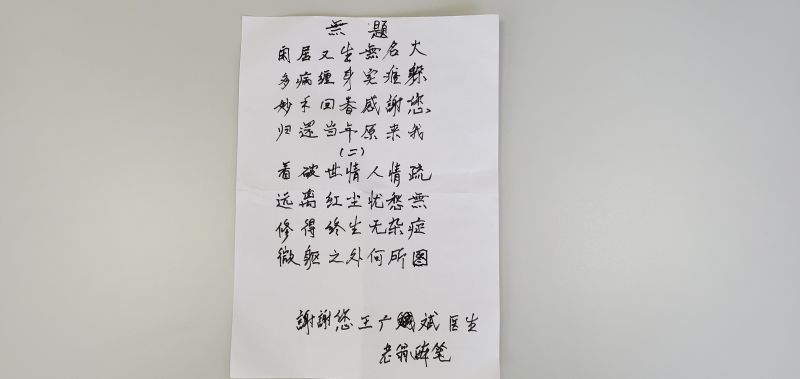 無题
闲居又生無名火
多病缠身实难躲
妙手回春感謝您
归還当年原来我
(二)
看破世情人情疏
远离红尘忧愁無
修得终生无杂症
微躯之外何所图
謝謝您王广斌医生
老翁醉笔